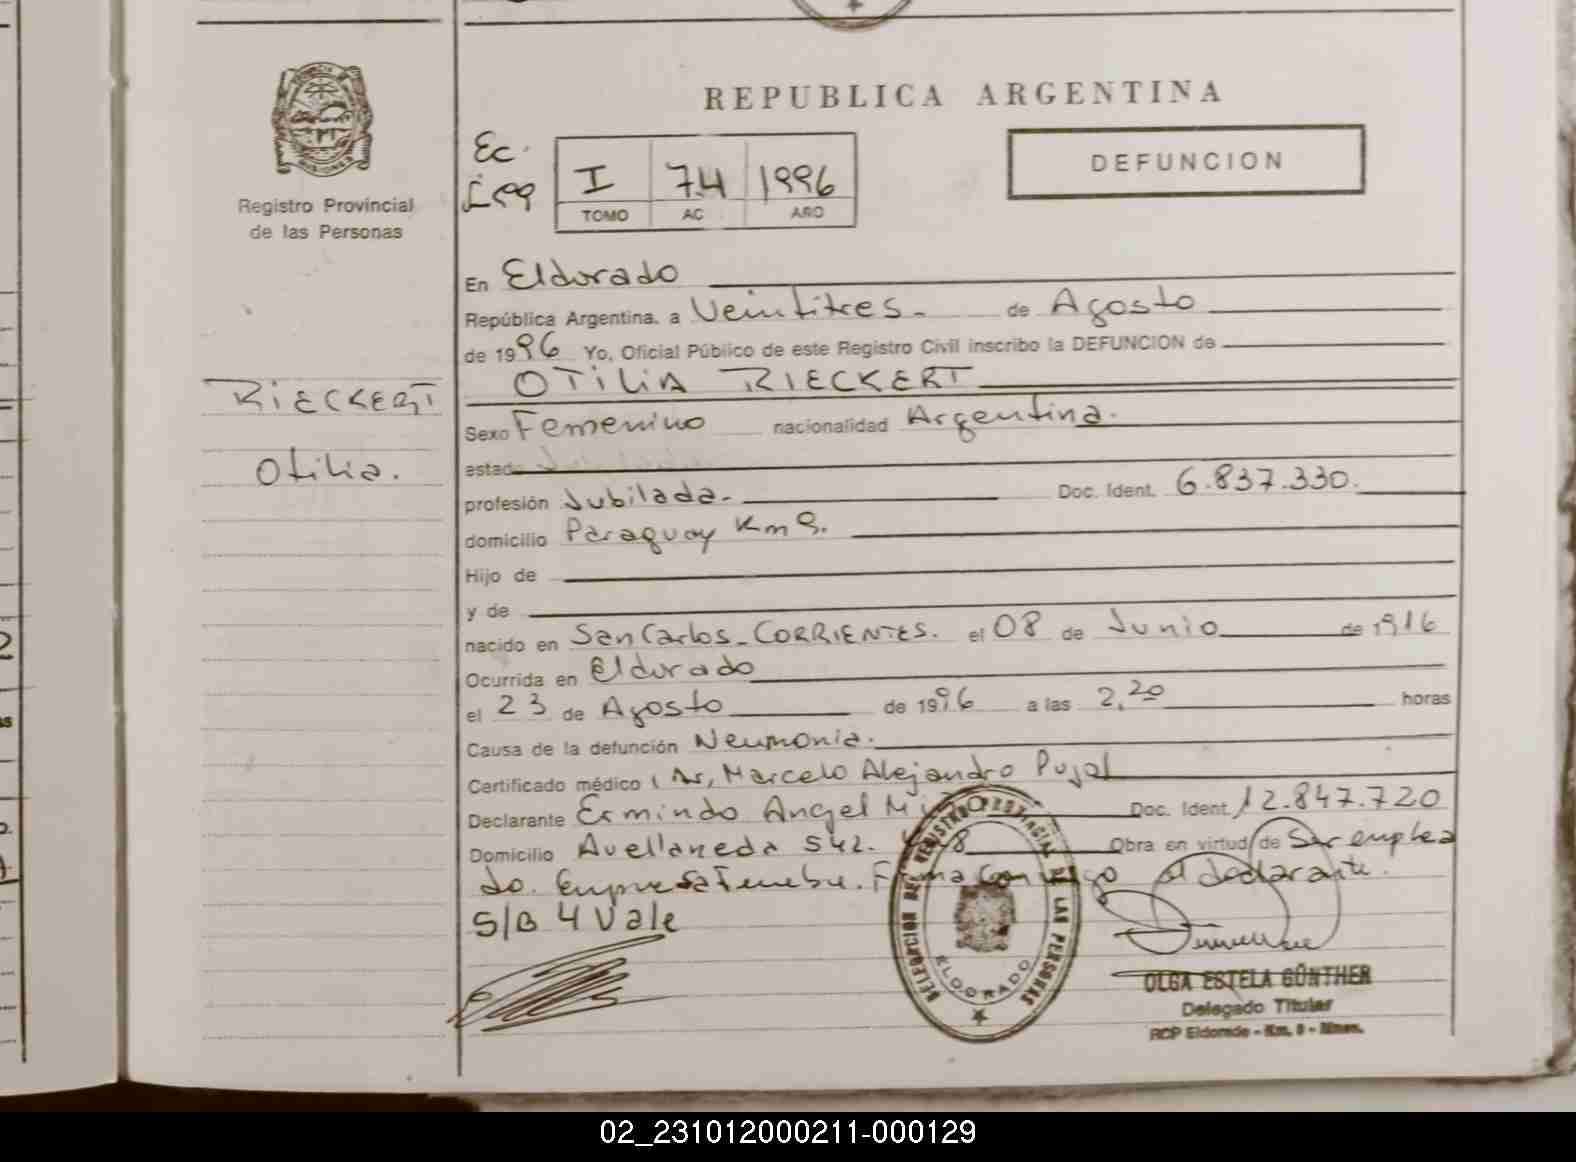 REPUBLICA ARGENTINA
DEFUNCION
Ec.
I 74 1996
TOMO AC AÑO
PROVINCIA DE MISIONES
Registro Provincial
de las Personas
RIECKERT
Otilia.
En Eldorado
República Argentina. a Veintitres. de Agosto
de 1996 Yo, Oficial Público de este Registro Civil inscribo la DEFUNCION de
OTILIA RIECKERT
Sexo Femenino nacionalidad Argentina.
estado
profesión Jubilada. Doc. Ident. 6.837.330.
domicilio Paraguay Km 9.
Hijo de
y de
nacido en San Carlos - CORRIENTES. el 08 de Junio de 1916
Ocurrida en Eldorado
el 23 de Agosto de 1996 a las 2,20 horas
Causa de la defunción Neumonia.
Certificado médico Marcelo Alejandro Pujal
Declarante Ermindo Angel Doc. Ident. 12.847.720
Domicilio Avellaneda 542. Obra en virtud de Ser emplea
do. Empresa Funebre. Firma Conmigo el declarante.
S/B 4 Vale
DELEGACION DEL REGISTRO PROVINCIAL DE LAS PERSONAS
ELDORADO
OLGA ESTELA GÜNTHER
Delegado Titular
RCP Eldorado - Km. 9 - Mnes.
02_231012000211-000129